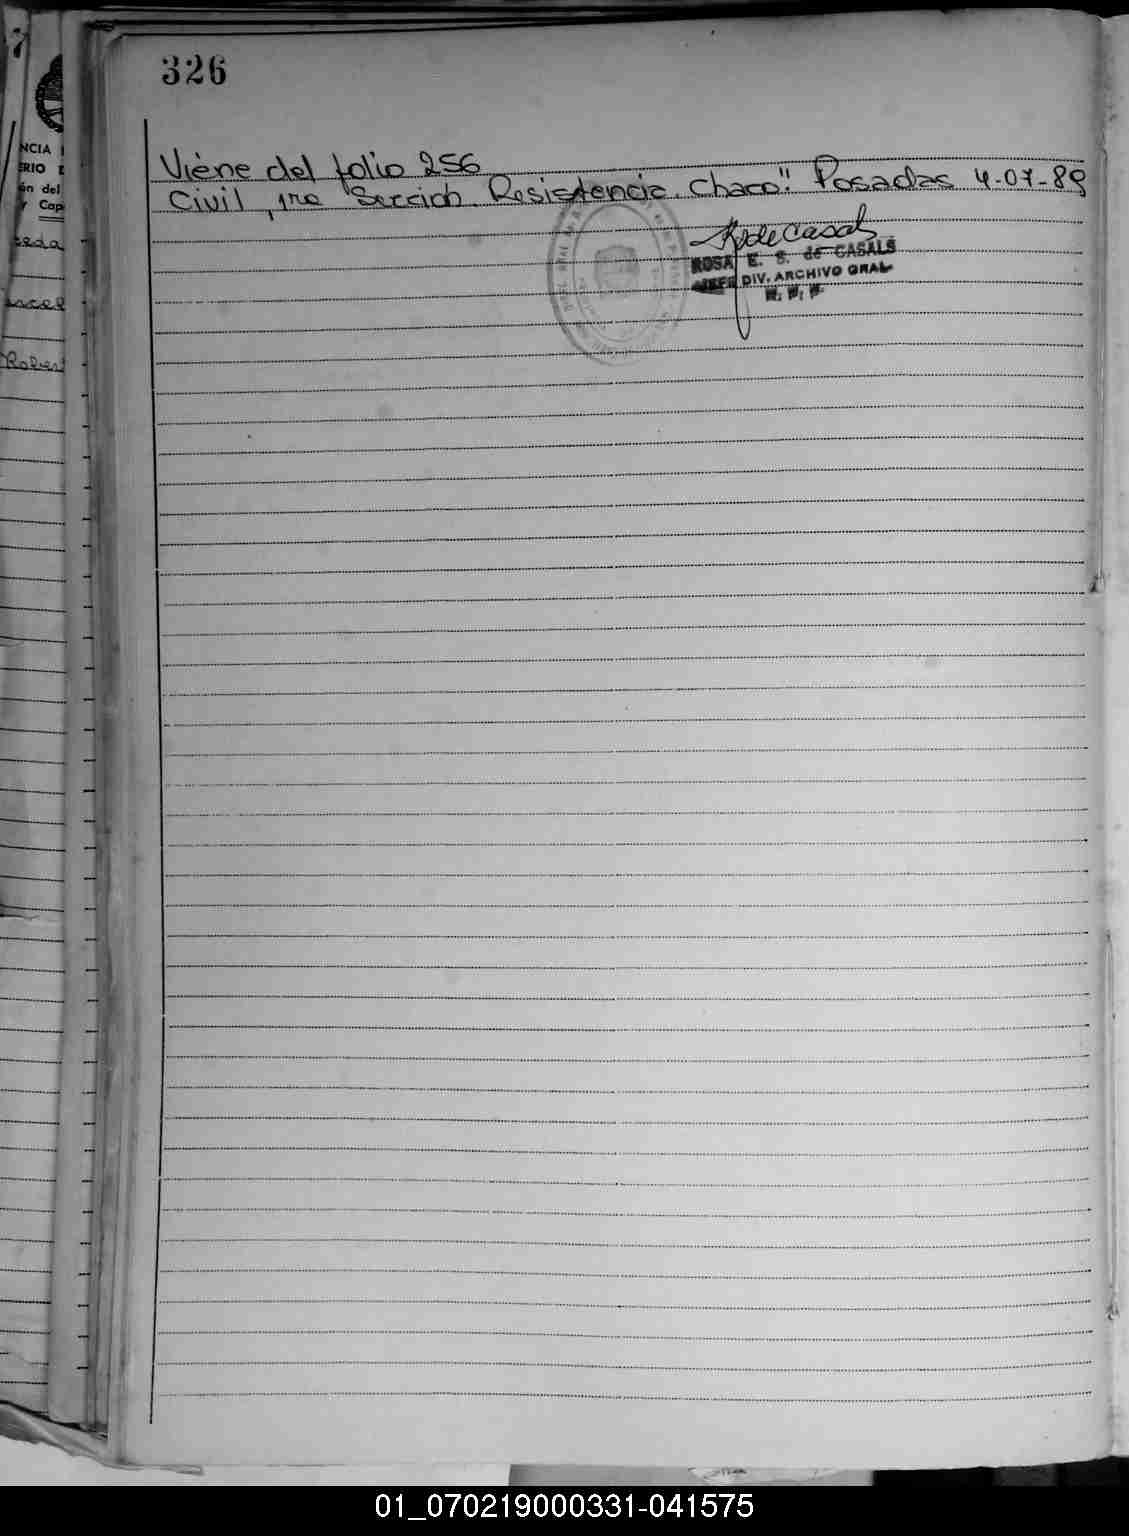 326
NCIA
ERIO D
ón del
y Cap
Viene del folio 256
Civil, 1ra Sección. Resistencia. Chaco". Posadas 4-07-89
RdeCasals
ROSA E. S. de CASALS
JEFE DIV. ARCHIVO GRAL
01_070219000331-041575